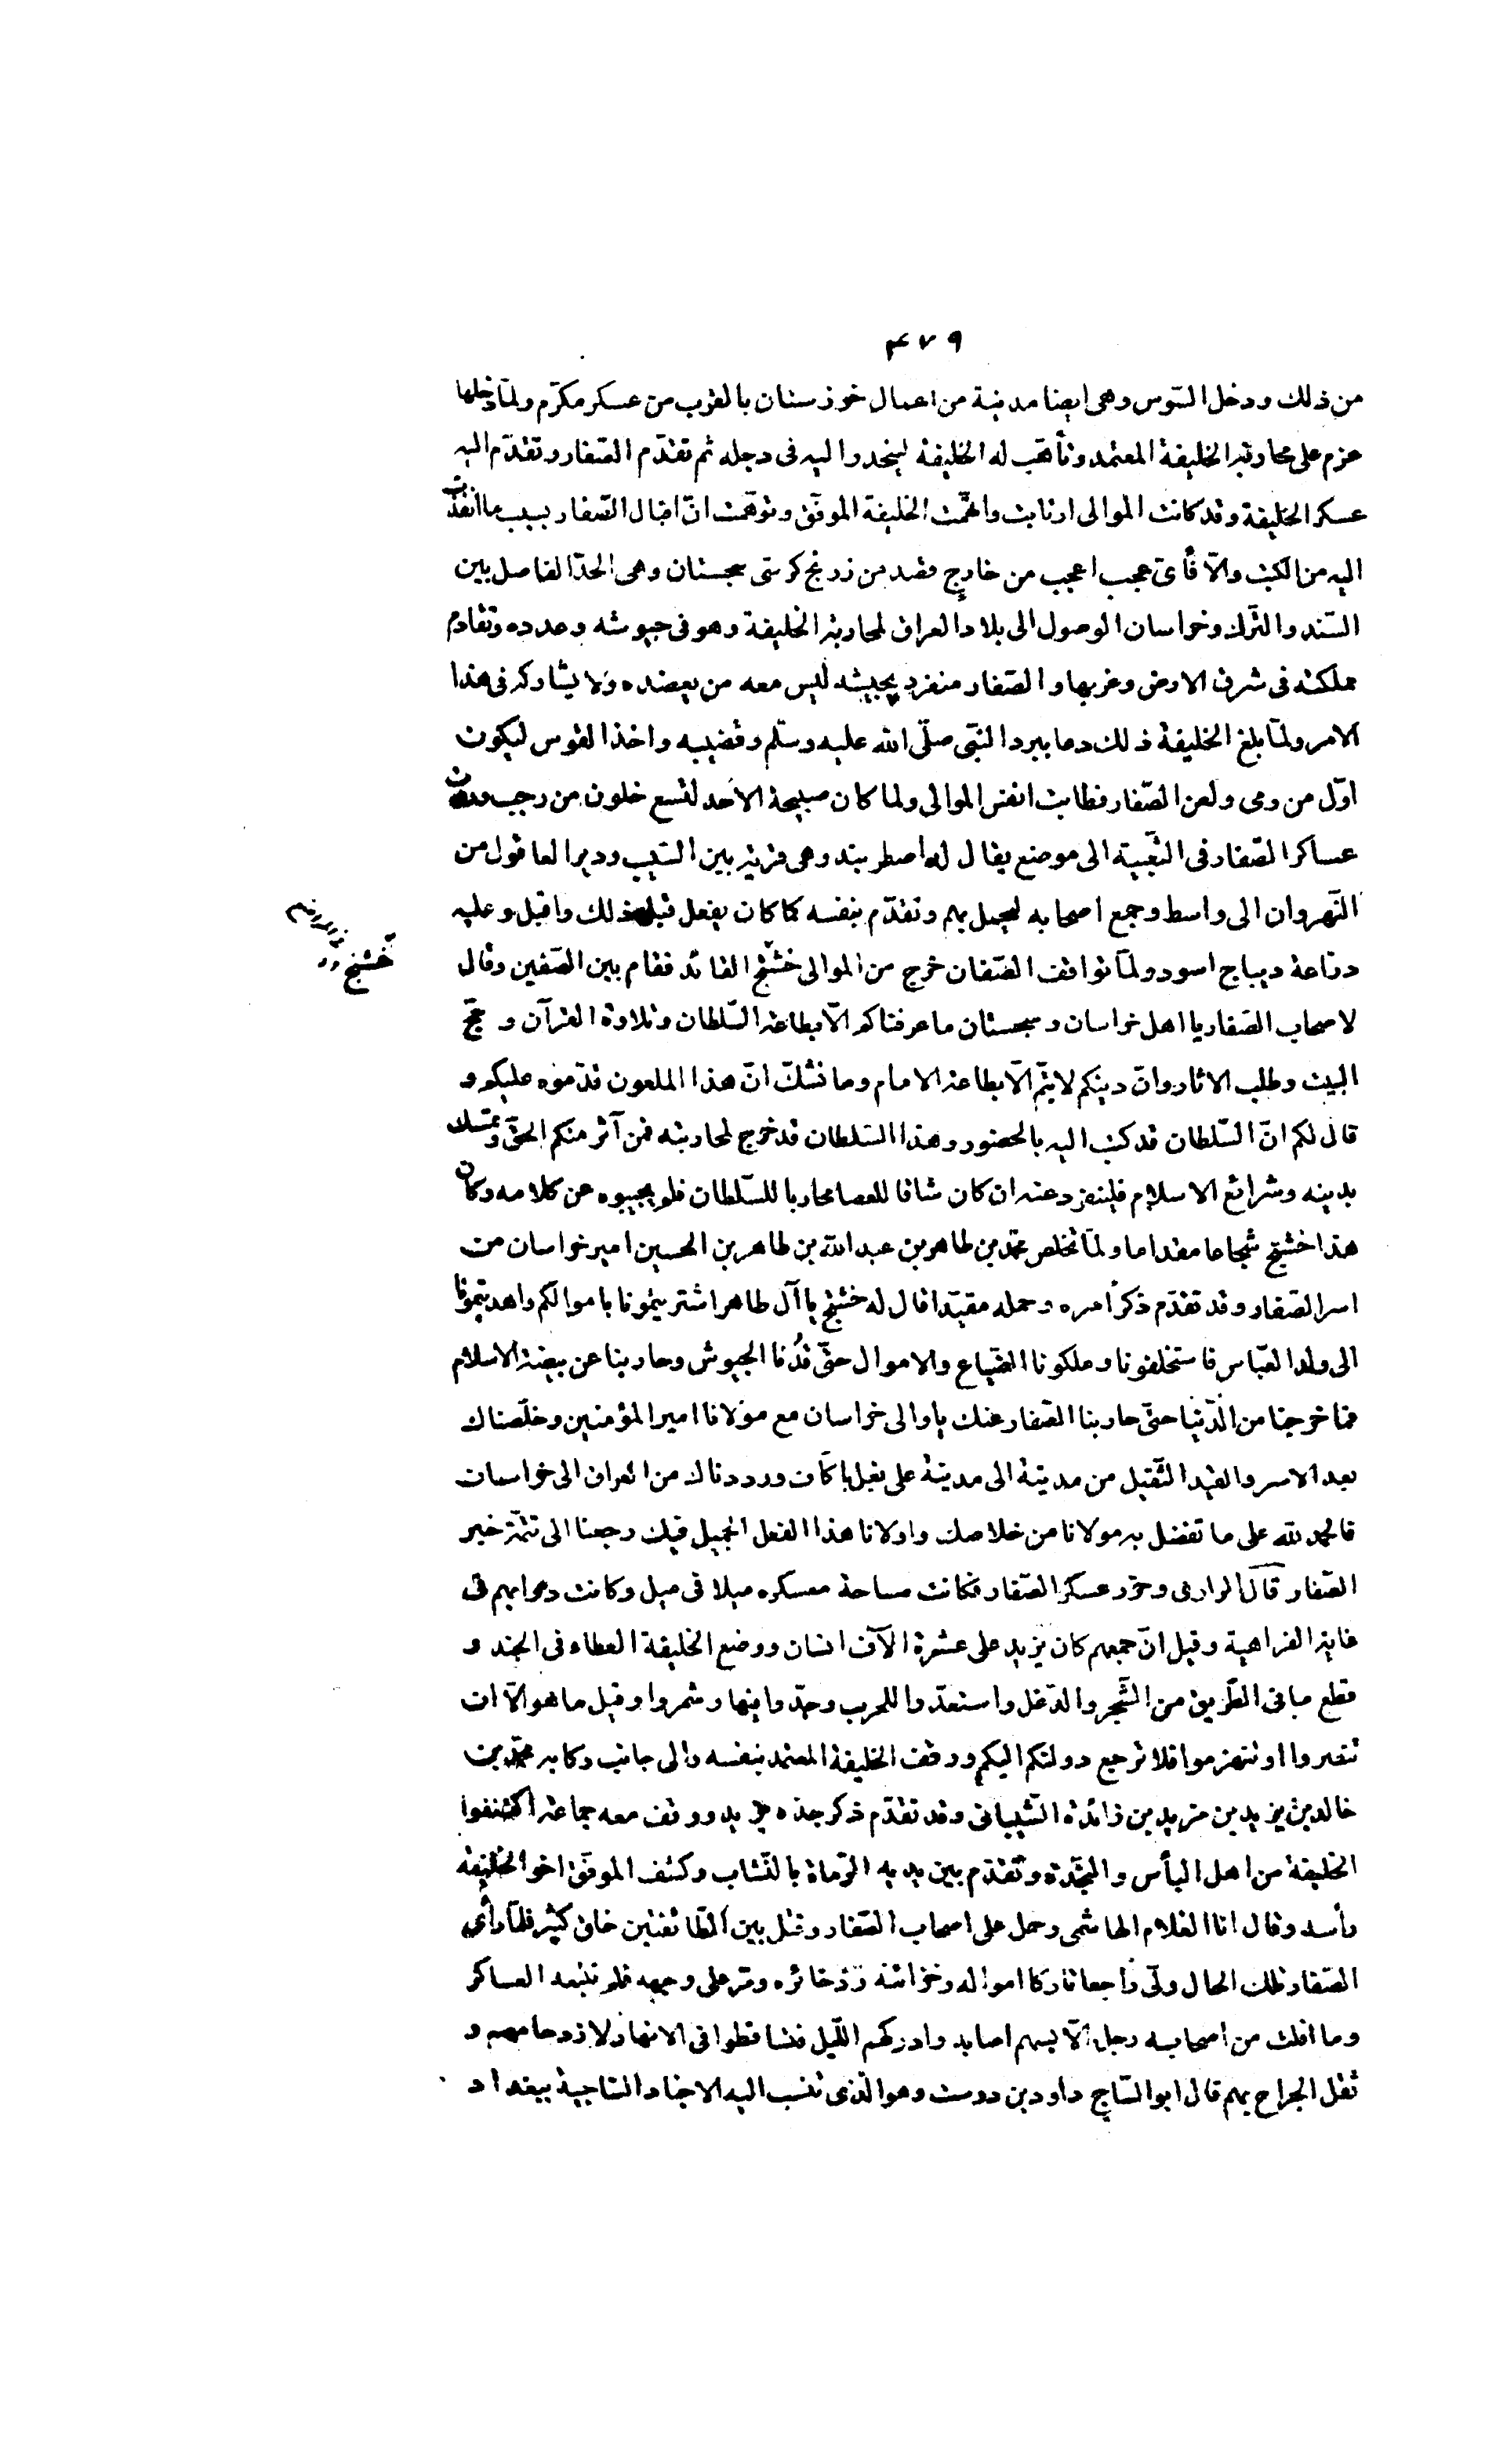 ٤٧٩
من ذلك ودخل السّوس وهى ايضا مدينة من اعمال خوزستان بالقرب من عسكر مكرّم ولمّا دخلها
عزم على محاربة الخليفة المعتمد وتأهّب له الخليفة لينحدر اليه فى دجله ثم تقدّم الصّفار وتقدّم اليه
عسكر الخليفة وقد كانت الموالى ارتابت واتّهمت الخليفة الموفّق وتوهّمت انّ اقبال الصّفار بسبب ما انفذت
اليه من الكتب والّا فأىّ عجب اعجب من خارج قصد من زرنج كرسّى سجستان وهى الحدّ الفاصل بين
السّند والتّرك وخراسان الوصول الى بلاد العراق لمحاربة الخليفة وهو فى جيوشه وعدده وتقادم
مملكته فى شرق الارض وغربها والصّفار منفرد بجيشه ليس معه من يعضده ولا يشاركه فى هذا
الامر ولمّا بلغ الخليفة ذلك دعا ببرد النبّى صلّى الله عليه وسلّم وقضيبه واخذ القوس ليكون
اوّل من رمى ولعن الصّفار فطابت انفس الموالى ولما كان صبيحة الاحد لتسع خلون من رجب وردت
عساكر الصّفار فى التّعبية الى موضع يقال له اصطربند وهى قرية بين السّيب ودير العاقول من
النّهروان الى واسط وجمع اصحابه ليحمل بهم وتقدّم بنفسه كما كان يفعل قبل ذلك واقبل وعليه
درّاعة ديباج اسود ولمّا توافقت الصّفان خرج من الموالى خشتج القائد فقام بين الصّفين وقال
خشتج
لاصحاب الصّفار يا اهل خراسان وسجستان ما عرفناكم الّا بطاعة السّلطان وتلاوة القرآن وحجّ
البيت وطلب الاثار وانّ دينكم لا يتمّ الّا بطاعة الامام وما نشكّ انّ هذا الملعون قد موّه عليكم و
قال لكم انّ السّلطان قد كتب اليه بالحضور وهذا السّلطان قد خرج لمحاربته فمن آثر منكم الحقّ وتمسّك
بدينه وشرائع الاسلام فلينفرد عنه ان كان شاقا للعصا محاربا للسّلطان فلم يجيبوه عن كلامه وكان
هذا خشتج شجاعا مقداما ولمّا تخلّص محمّد بن طاهر بن عبد الله بن طاهر بن الحسين امير خراسان من
اسر الصّفار وقد تقدّم ذكر اسره وحمله مقيّدا قال له خشتج يا آل طاهر اشتريتمونا باموالكم واهديتمونا
الى ولد العبّاس فاستخلفونا وملكونا الضّياع والاموال حتّى قُدنا الجيوش وحاربنا عن بيضة الاسلام
فما خرجنا من الدّنيا حتّى حاربنا الصّفار عنك يا والى خراسان مع مولانا امير المؤمنين وخلّصناك
بعد الاسر والقيد الثّقيل من مدينة الى مدينة على بغل باكاف ورددناك من العراق الى خراسان
فالحمد لله على ما تفضل به مولانا من خلاصك واولانا هذا الفعل الجميل فيك رجعنا الى تتمّة خبر
الصّفار قال الراوى وحزر عسكر الصّفار فكانت مساحة معسكره ميلا فى ميل وكانت دوابهم فى
غاية الفراهية وقيل انّ جمعهم كان يزيد على عشرة الآف انسان ووضع الخليفة العطاء فى الجند و
قطع مافى الطّريق من الشّجر والدّغل واستعدّوا للحرب وجدّوا فيها وشمروا وقيل ما هو الّا ان
تصبروا او تنهزموا فلا ترجع دولتكم اليكم ووقف الخليفة المعتمد بنفسه والى جانب ركابه محمّد بن
خالد بن يزيد بن مزيد بن زائدة الشّيبانى وقد تقدّم ذكر جدّه يزيد ووقف معه جماعة اكتنفوا
الخليفة من اهل البأس والنّجدة وتقدّم بين يديه الرّماة بالنّشّاب وكشف الموفّق اخو الخليفة
رأسه وقال انا الغلام الهاشمى وحمل على اصحاب الصّفار وقتل بين الطّائفتين خلق كثير فلمّا رأى
الصّفار تلك الحال ولّى راجعا تاركا امواله وخزائنه وذخائره ومرّ على وجهه فلم تتبعه العساكر
وما افلت من اصحابه رجل الّا بسهم اصابه وادركهم اللّيل فتساقطوا فى الانهار لازدحامهم و
ثقل الجراح بهم قال ابو السّاج داود بن دوست وهو الذى تنسب اليه الاجناد السّاجية ببغداد